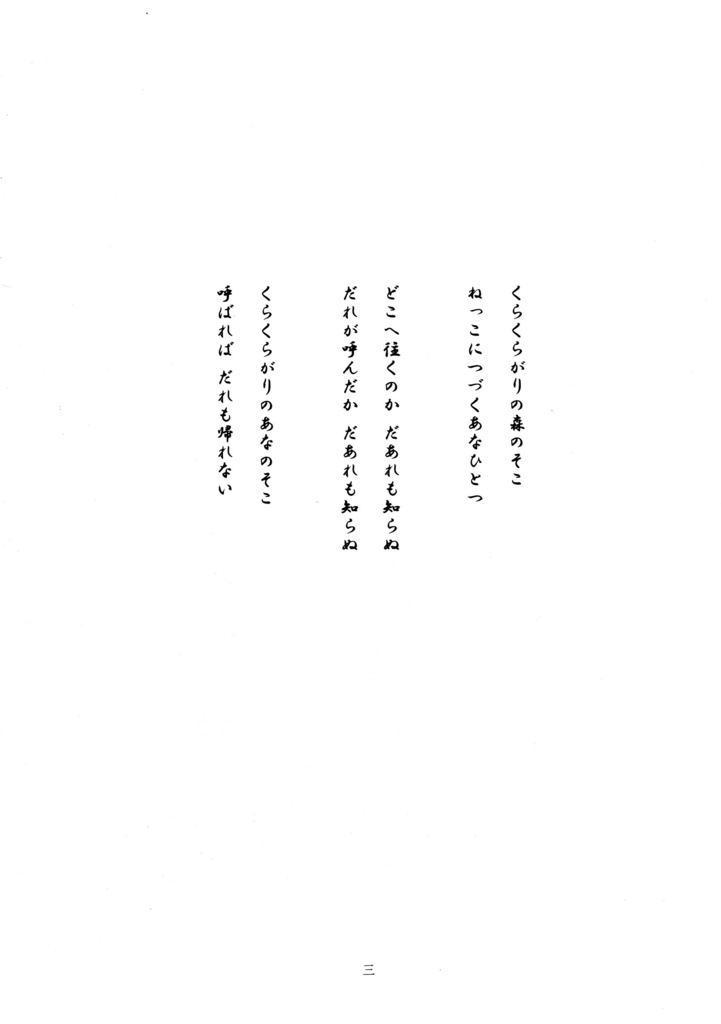 くらくらがりの森のそこ
ねっこにつづくあなひとつ
どこへ往くのか だあれも知らぬ
だれが呼んだか だあれも知らぬ
くらくらがりのあなのそこ
呼ばれば だれも帰れない
三